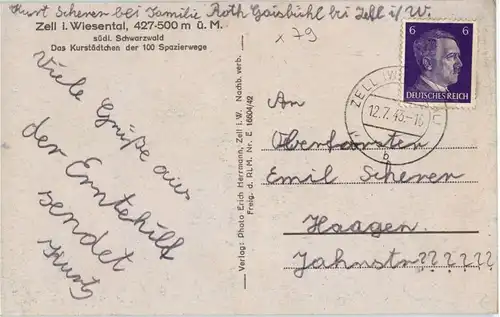 Kurt Scherer bei Familie Roth Gaisbühl bei Zell i/W.
Zell i. Wiesental, 427-500 m ü. M.
südl. Schwarzwald
Das Kurstädtchen der 100 Spazierwege
x 79
Viele Grüße aus
der Erntehilfe
sendet
Kurt
Verlag: Photo Erich Herrmann, Zell i.W. Nachb. verb.
Freig. d. RLM. Nr. E 16604/42
6 6
DEUTSCHES REICH
ZELL (WIESENTAL)
12.7.43.-16
b
An
Oberforsten
Emil Scherer
Haagen
Jahnstr??????